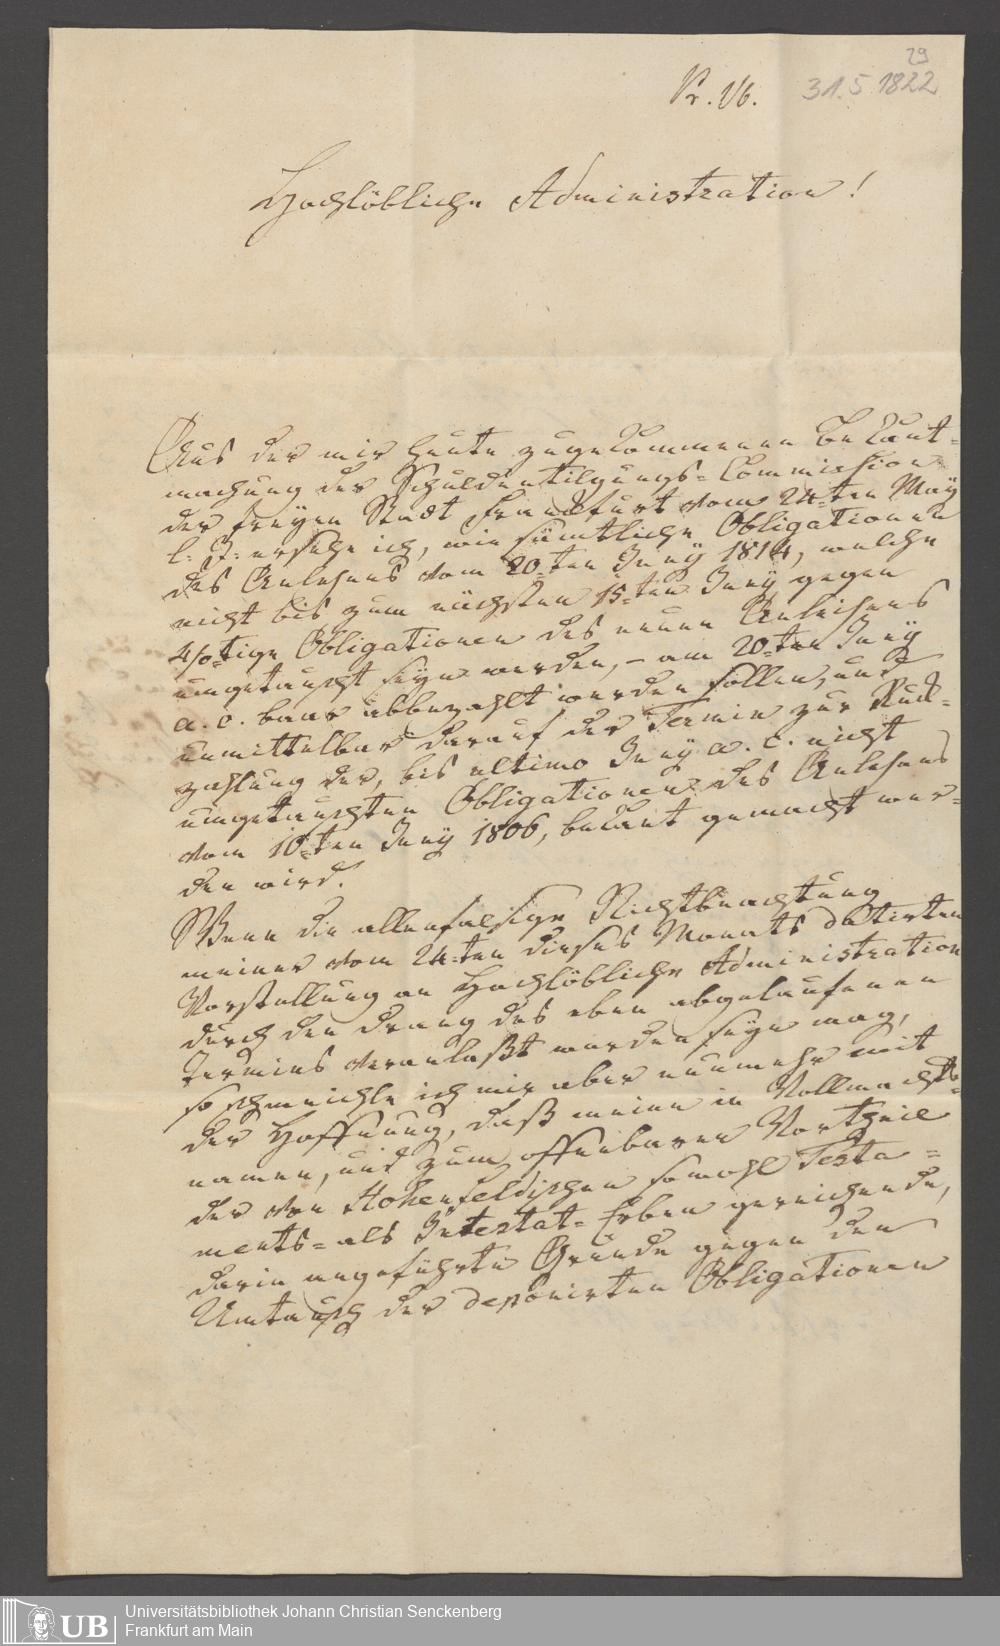 29
31.5.1822
Pr. Vb.
Hochlöbliche Administration!
Aus der mir heute zugekommenen Bekant-
machung der Schuldentilgungs-Commission
der freyen Stadt Frankfurt vom 24-ten May
l. J. ersehe ich, wie sämtliche Obligationen
des Anlehens vom 20-ten Juny 1814, welche
nicht bis zum nächsten 15-ten Juny gegen
4%tige Obligationen des neuen Anleihens
umgetauscht seyn werden, – am 20-ten Juny
a. c. baar abbezahlt werden sollen, und
unmittelbar darauf der Termin zur Rück-
zahlung der, bis ultimo Juny a. c. nicht
umgetauschten Obligationen des Anlehens
vom 10-ten Juny 1806, bekant gemacht wer-
den wird.
Wenn die allenfalsige Nichtbeachtung
meiner vom 24-ten dieses Monats datirten
Vorstellung an Hochlöbliche Administration
durch den Drang des eben abgelaufenen
Termins veranlaßt worden seyn mag,
so schmeichle ich mir aber nunmehr mit
der Hoffnung, daß meine in Vollmachts-
namen, und zum offenbaren Vortheil
der von Hohenfeldischen sowohl Testa-
ments- als Intestat-Erben gereichende,
darin angeführte Gründe gegen den
Umtausch der deponirten Obligationen
UB
Universitätsbibliothek Johann Christian Senckenberg
Frankfurt am Main